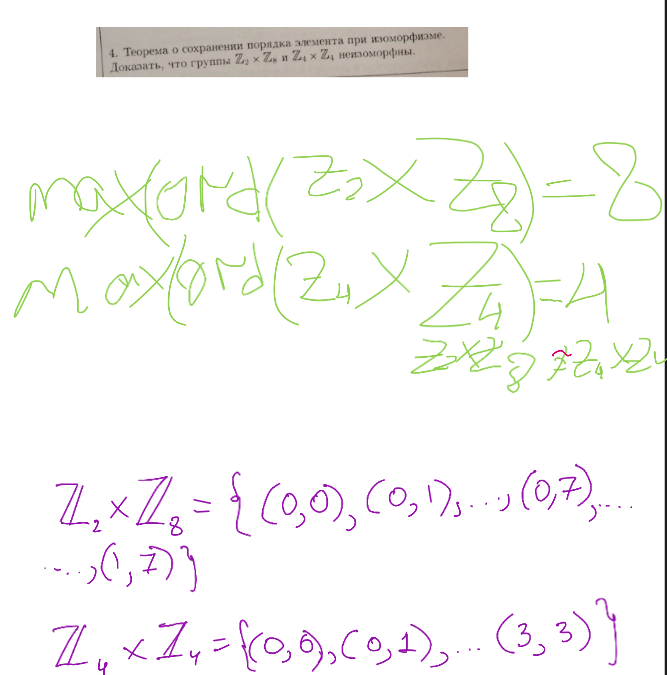 4. Теорема о сохранении порядка элемента при изоморфизме.
Доказать, что группы ℤ₂ × ℤ₈ и ℤ₄ × ℤ₄ неизоморфны.
max(ord(Z₂×Z₈)=8
max(ord(Z₄×Z₄)=4
Z₂×Z₈ ≇ Z₄×Z₄
ℤ₂×ℤ₈ = {(0,0),(0,1),...,(0,7),....
....,(1,7)}
ℤ₄×ℤ₄={(0,0),(0,1),...(3,3)}